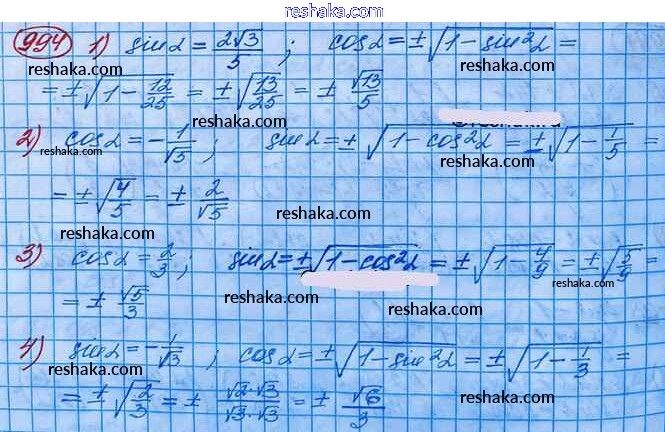 reshaka.com
994 1) sinα = 2√3/5 ; cosα = ±√(1 − sin²α) =
reshaka.com reshaka.com
= ±√(1 − 12/25) = ±√(13/25) = ± √13/5
reshaka.com
2) cosα = −1/√5 ; sinα = ±√(1 − cos²α) = ±√(1 − 1/5) =
reshaka.com reshaka.com reshaka.com
= ±√(4/5) = ± 2/√5
reshaka.com reshaka.com
3) cosα = 2/3 ; sinα = ±√(1 − cos²α) = ±√(1 − 4/9) = ±√(5/9) =
reshaka.com
= ± √5/3
reshaka.com reshaka.com
4) sinα = −1/√3 ; cosα = ±√(1 − sin²α) = ±√(1 − 1/3) =
reshaka.com reshaka.com
= ±√(2/3) = ± √2·√3/√3·√3 = ± √6/3
reshaka.com reshaka.com